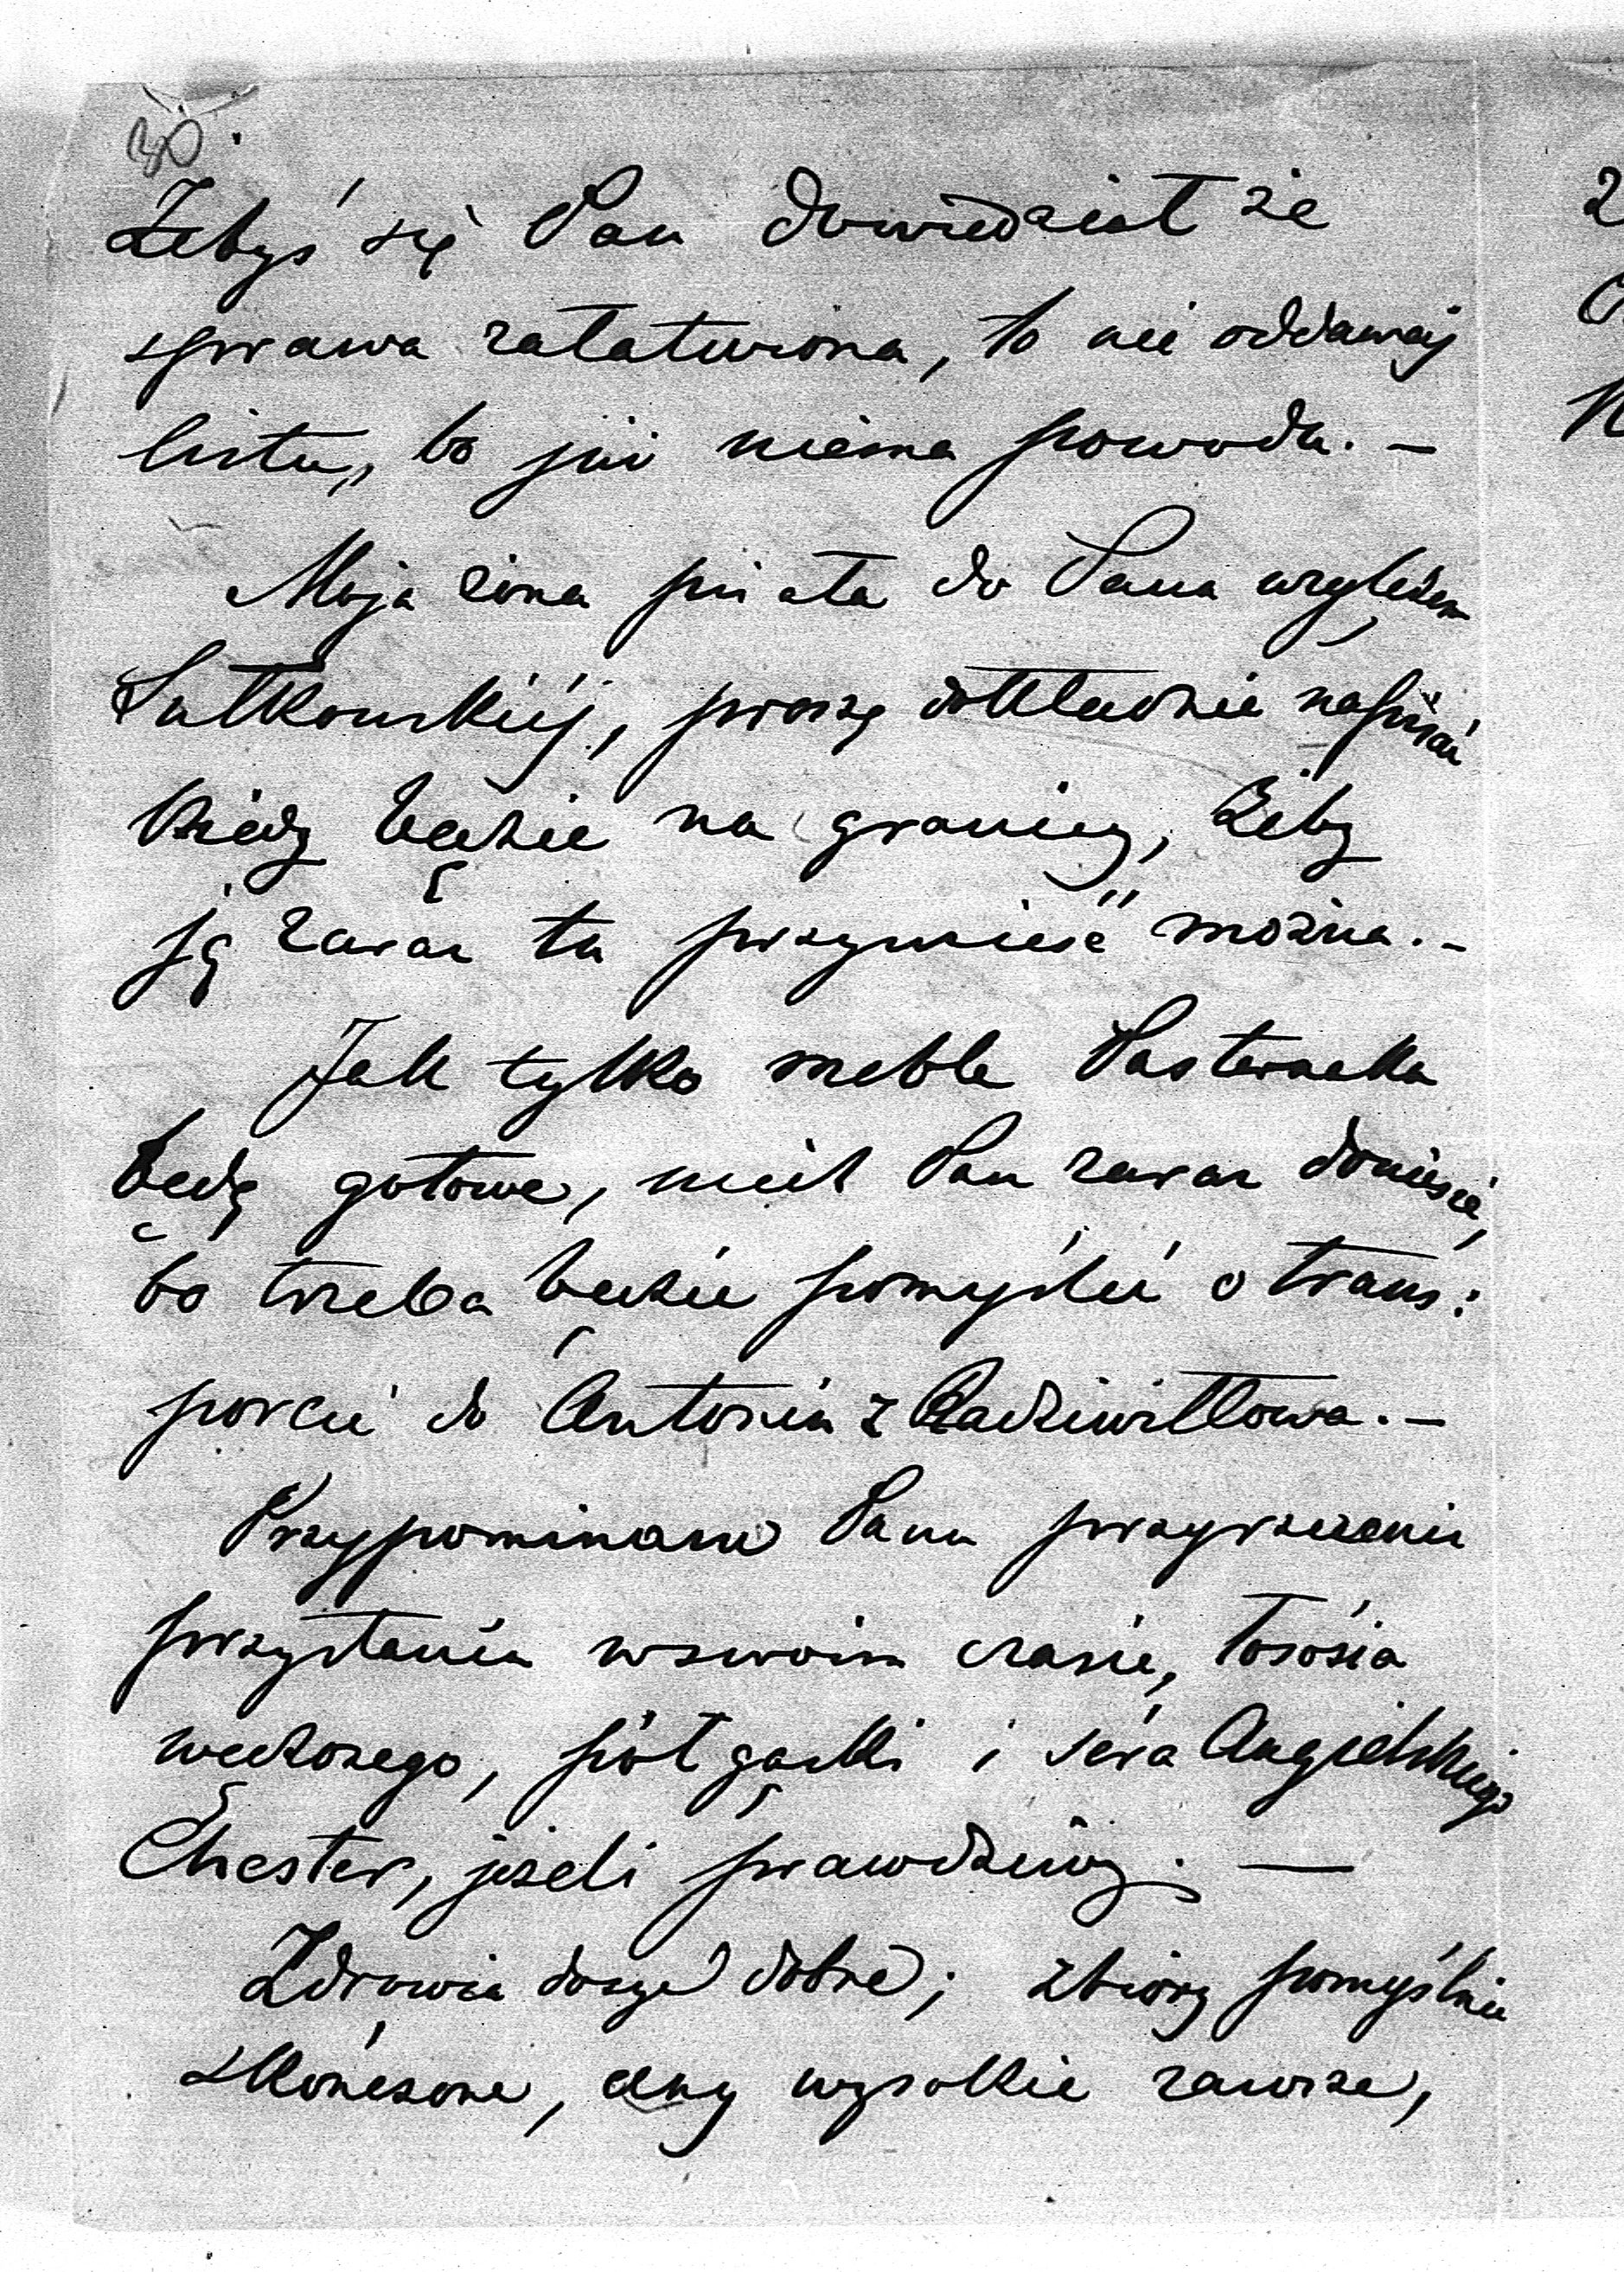 30.
Żebyś się Pan dowiedział że
sprawa załatwiona, to nie oddawaj
listu, bo już niema powodu. —
Moja żona pisała do Pana względem
Sułkowskiéj, proszę dokładnie napisać
kiedy będzie na granicy, żeby
ją zaraz tu przywieść można. —
Jak tylko meble Pasternaka
będą gotowe, niech Pan zaraz doniesie,
bo trzeba będzie pomyśleć o trans:
porcie do Antonin z Radziwiłłowa. —
Przypominam Panu przyrzeczenie
przysłania w swoim czasie, łososia
wędzonego, półgąski i séra Angielskiego
Chester, jeżeli prawdziwy. —
Zdrowie dosyć dobre; zbiory pomyślnie
skończone, ceny wysokie zawsze,